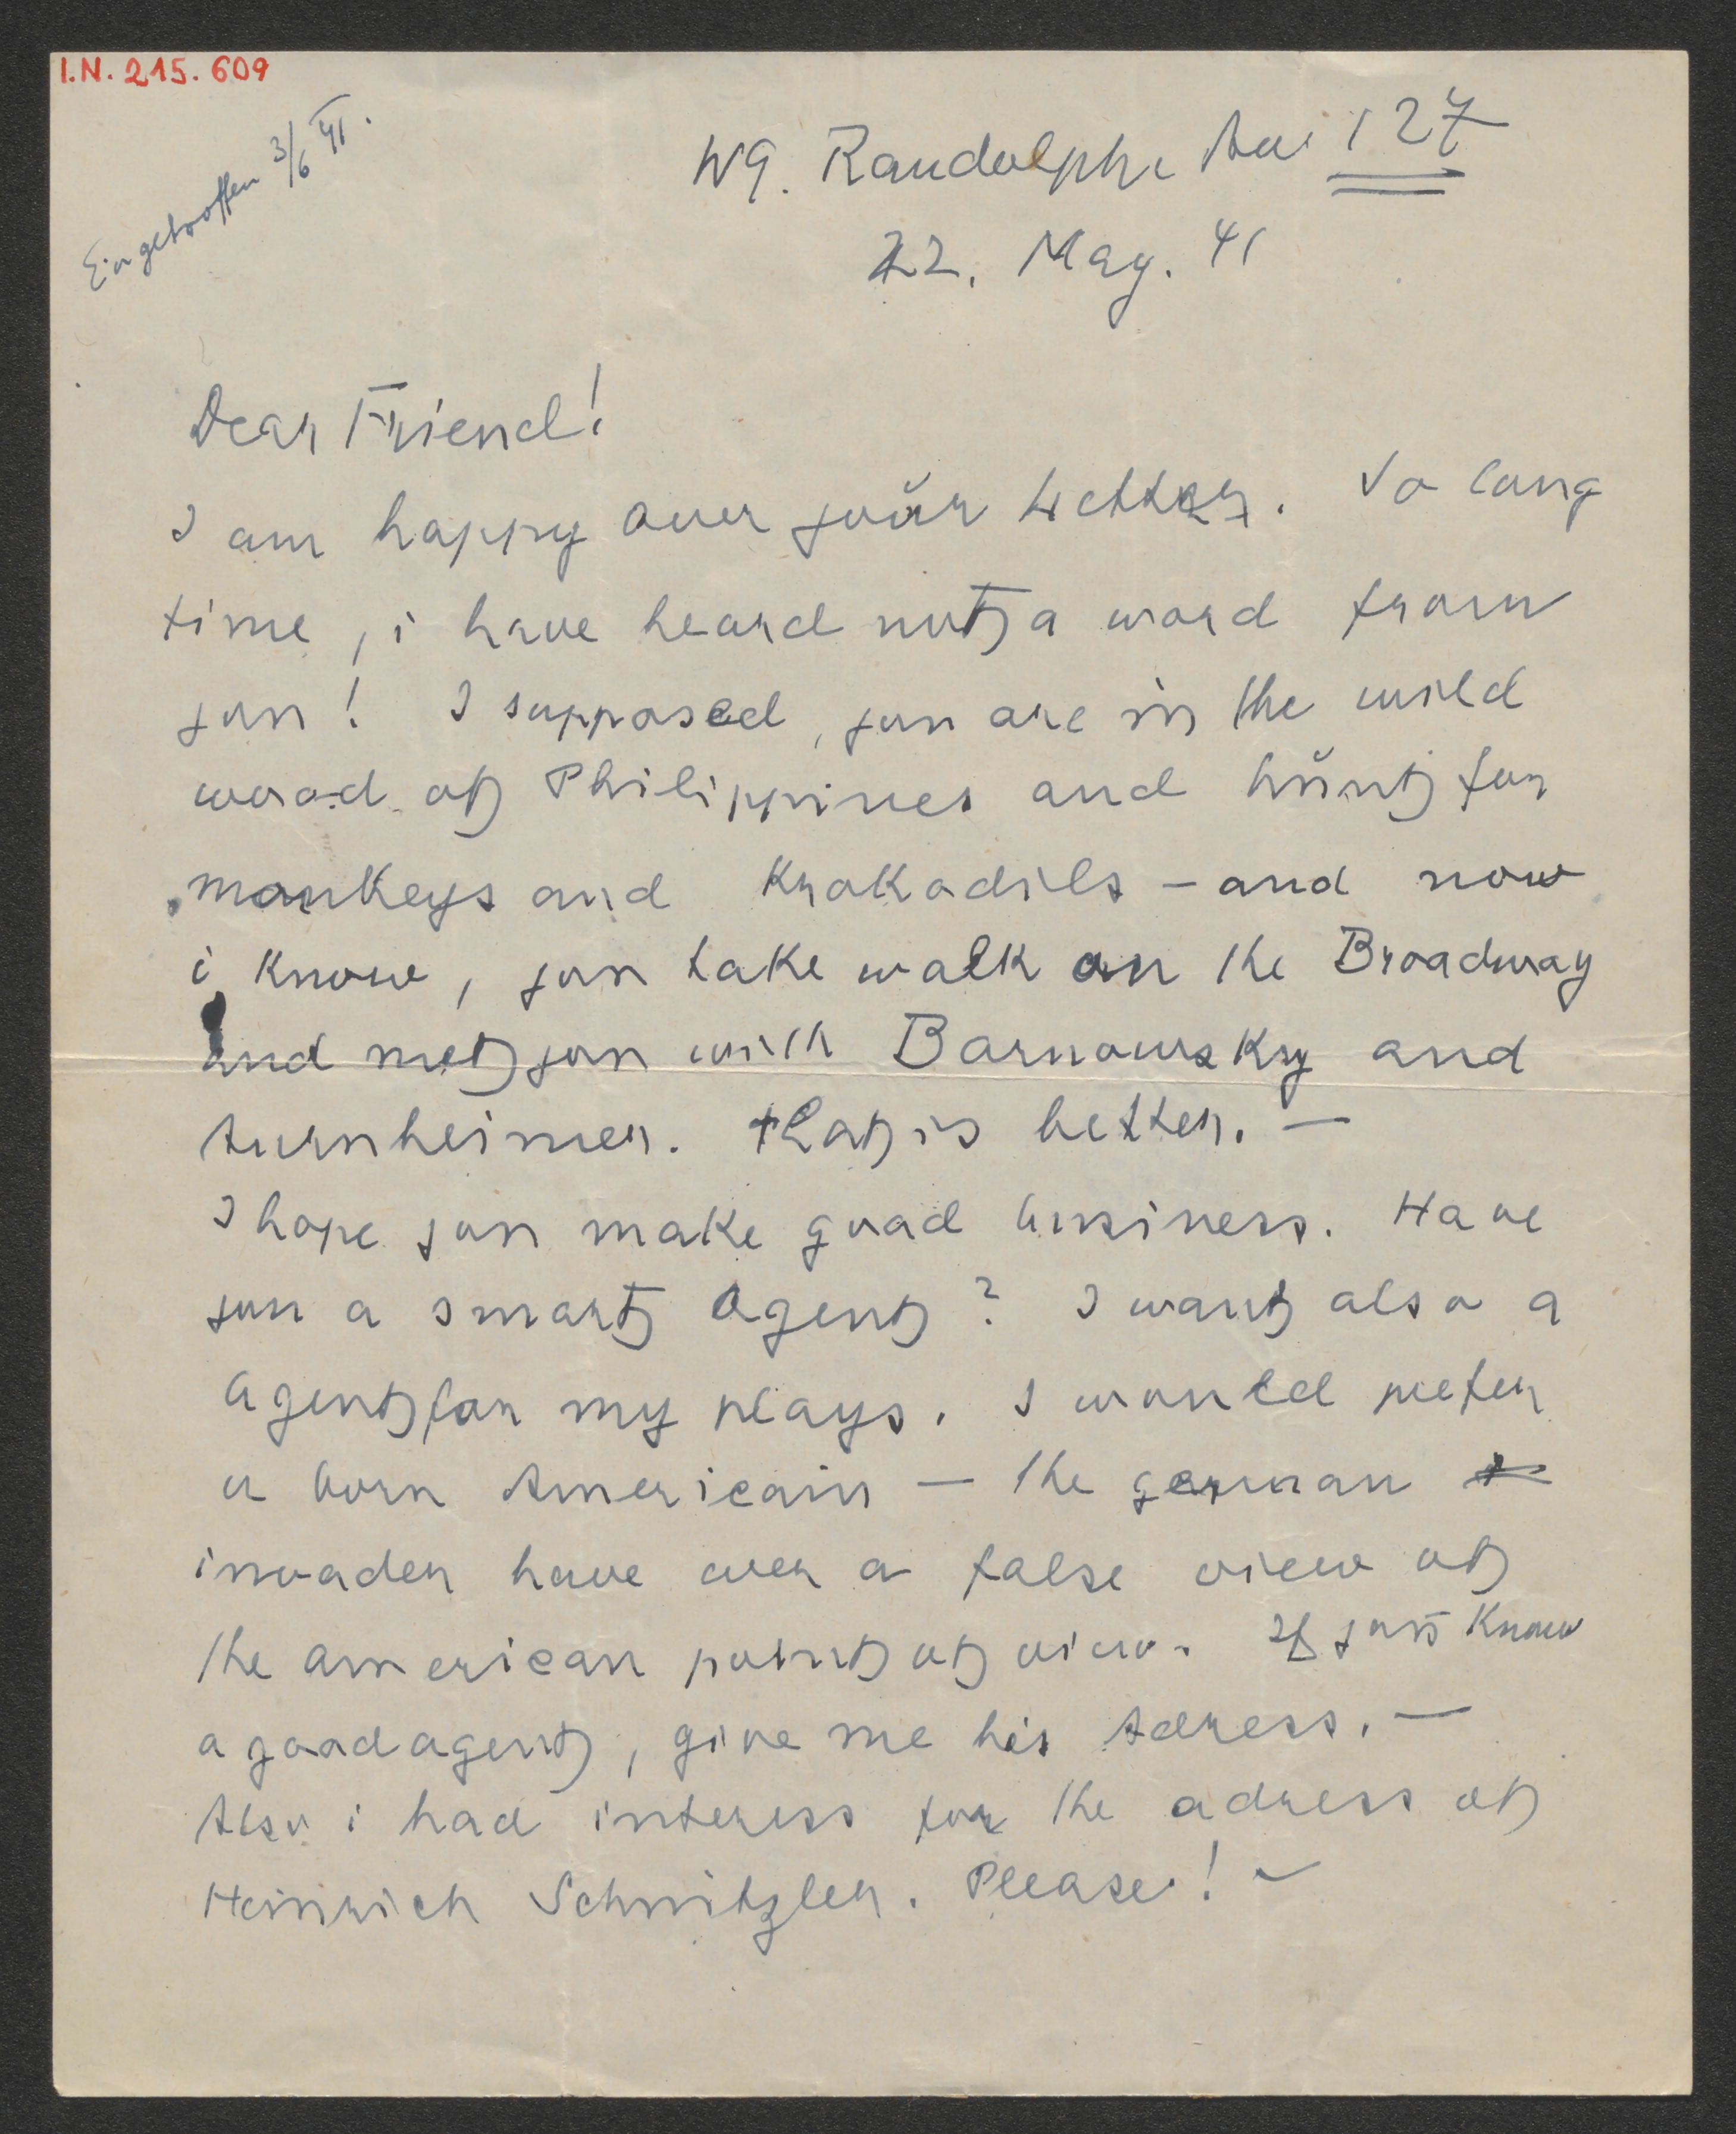 I.N. 215.609
Eingetroffen 3/6 41.
W9. Randolph Av 127
22. May. 41
Dear Friend!
I am happy over your Letter. So long
time, i have heard not a word from
you! I supposed, you are in the wild
wood of Philippines and hunt for
monkeys and Krokodils – and now
i know, you take walk on the Broadway
and met you with Barnowsky and
Aurnheimer. that is better. —
I hope you make good business. Have
you a smart Agent? I want also a
Agent for my plays. I would prefer
a born Americain — the german
invader have ever a false view of
the american point of view. If you know
a good agent, give me his Adress. —
Also i had interess for the adress of
Heinrich Schnitzler. Please! –